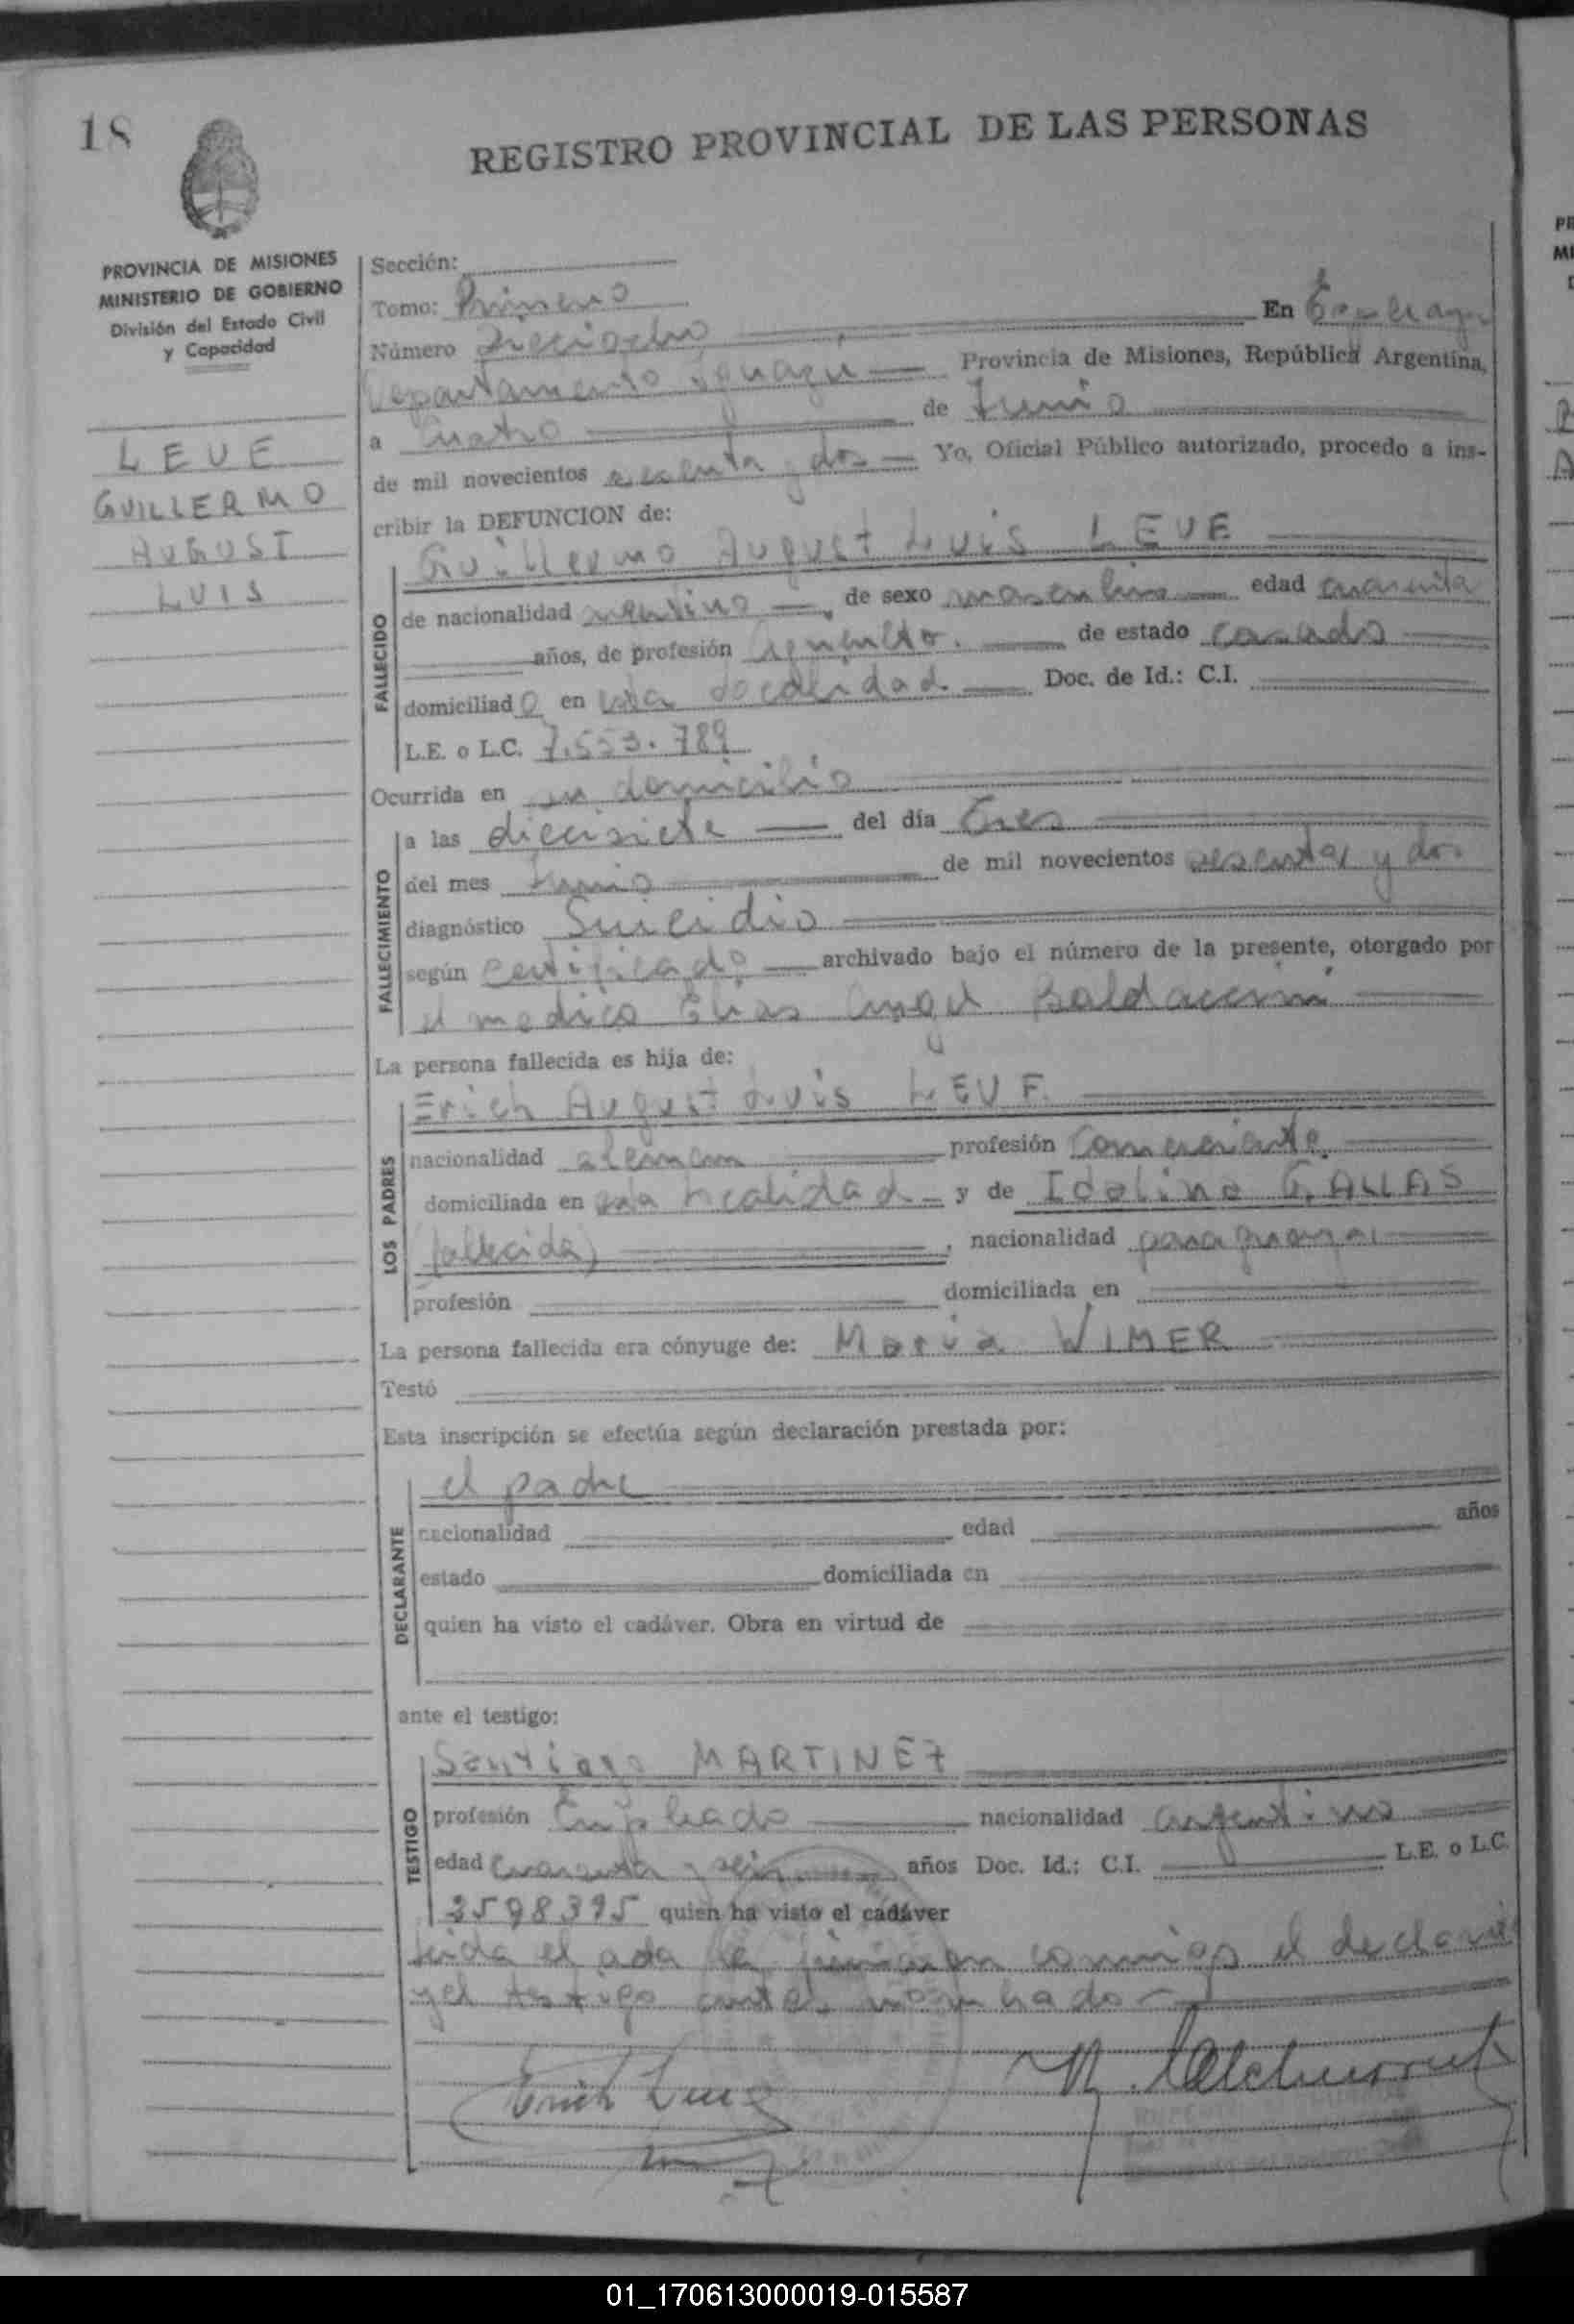 18
REGISTRO PROVINCIAL DE LAS PERSONAS
PROVINCIA DE MISIONES
MINISTERIO DE GOBIERNO
División del Estado Civil
y Capacidad
LEUE
GUILLERMO
AUGUST
LUIS
Sección:
Tomo: Primero
Número Dieciocho En
Departamento Iguazú Provincia de Misiones, República Argentina,
a Cuatro de Junio
de mil novecientos sesenta y dos Yo, Oficial Público autorizado, procedo a ins-
cribir la DEFUNCION de:
FALLECIDO
Guillermo August Luis LEUE
de nacionalidad de sexo masculino edad cuarenta
años, de profesión de estado casado
domiciliado en esta localidad Doc. de Id.: C.I.
L.E. o L.C. 7.553.789
Ocurrida en su domicilio
FALLECIMIENTO
a las diecisiete del día Tres
del mes Junio de mil novecientos sesenta y dos
diagnóstico Suicidio
según certificado archivado bajo el número de la presente, otorgado por
el medico Elias Angel Baldaccini
La persona fallecida es hija de:
LOS PADRES
Erich August Luis LEUE
nacionalidad aleman profesión Comerciante
domiciliada en esta localidad y de Idolina GALLAS
(fallecida), nacionalidad paraguaya
profesión domiciliada en
La persona fallecida era cónyuge de: Maria WIMER
Testó
Esta inscripción se efectúa según declaración prestada por:
DECLARANTE
el padre
nacionalidad edad años
estado domiciliada en
quien ha visto el cadáver. Obra en virtud de
ante el testigo:
TESTIGO
Santiago MARTINEZ
profesión Empleado nacionalidad argentino
edad cuarenta y seis años Doc. Id.: C.I. L.E. o L.C.
3598395 quien ha visto el cadáver
leida el acta la firman conmigo el
y el testigo antes nombrado
Erich Leue
01_170613000019-015587